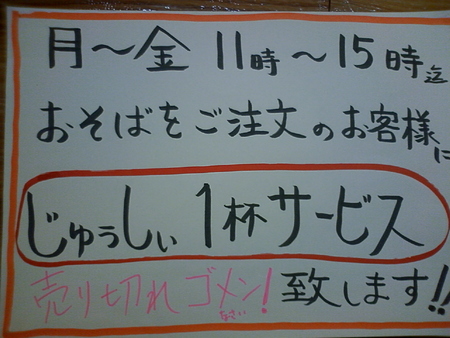 月～金 11時～15時迄
おそばをご注文のお客様に
じゅうしぃ 1杯サービス
売り切れゴメン!なさい 致します!!